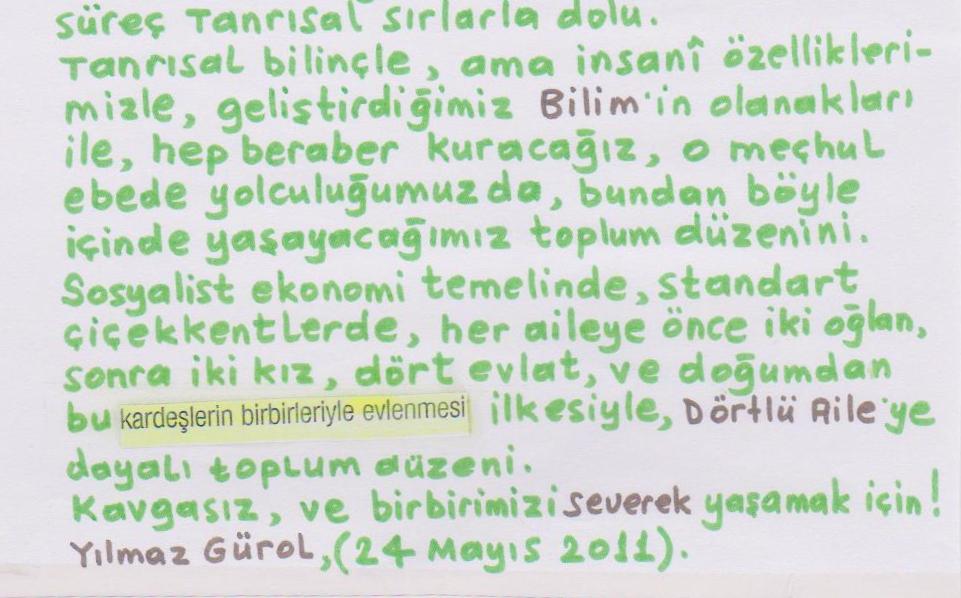 süreç Tanrısal sırlarla dolu.
Tanrısal bilinçle, ama insanî özellikleri-
mizle, geliştirdiğimiz Bilim'in olanakları
ile, hep beraber kuracağız, o meçhul
ebede yolculuğumuzda, bundan böyle
içinde yaşayacağımız toplum düzenini.
Sosyalist ekonomi temelinde, standart
çiçekkentlerde, her aileye önce iki oğlan,
sonra iki kız, dört evlat, ve doğumdan
bu kardeşlerin birbirleriyle evlenmesi ilkesiyle, Dörtlü Aile'ye
dayalı toplum düzeni.
Kavgasız, ve birbirimizi severek yaşamak için!
Yılmaz Gürol, (24 Mayıs 2011).